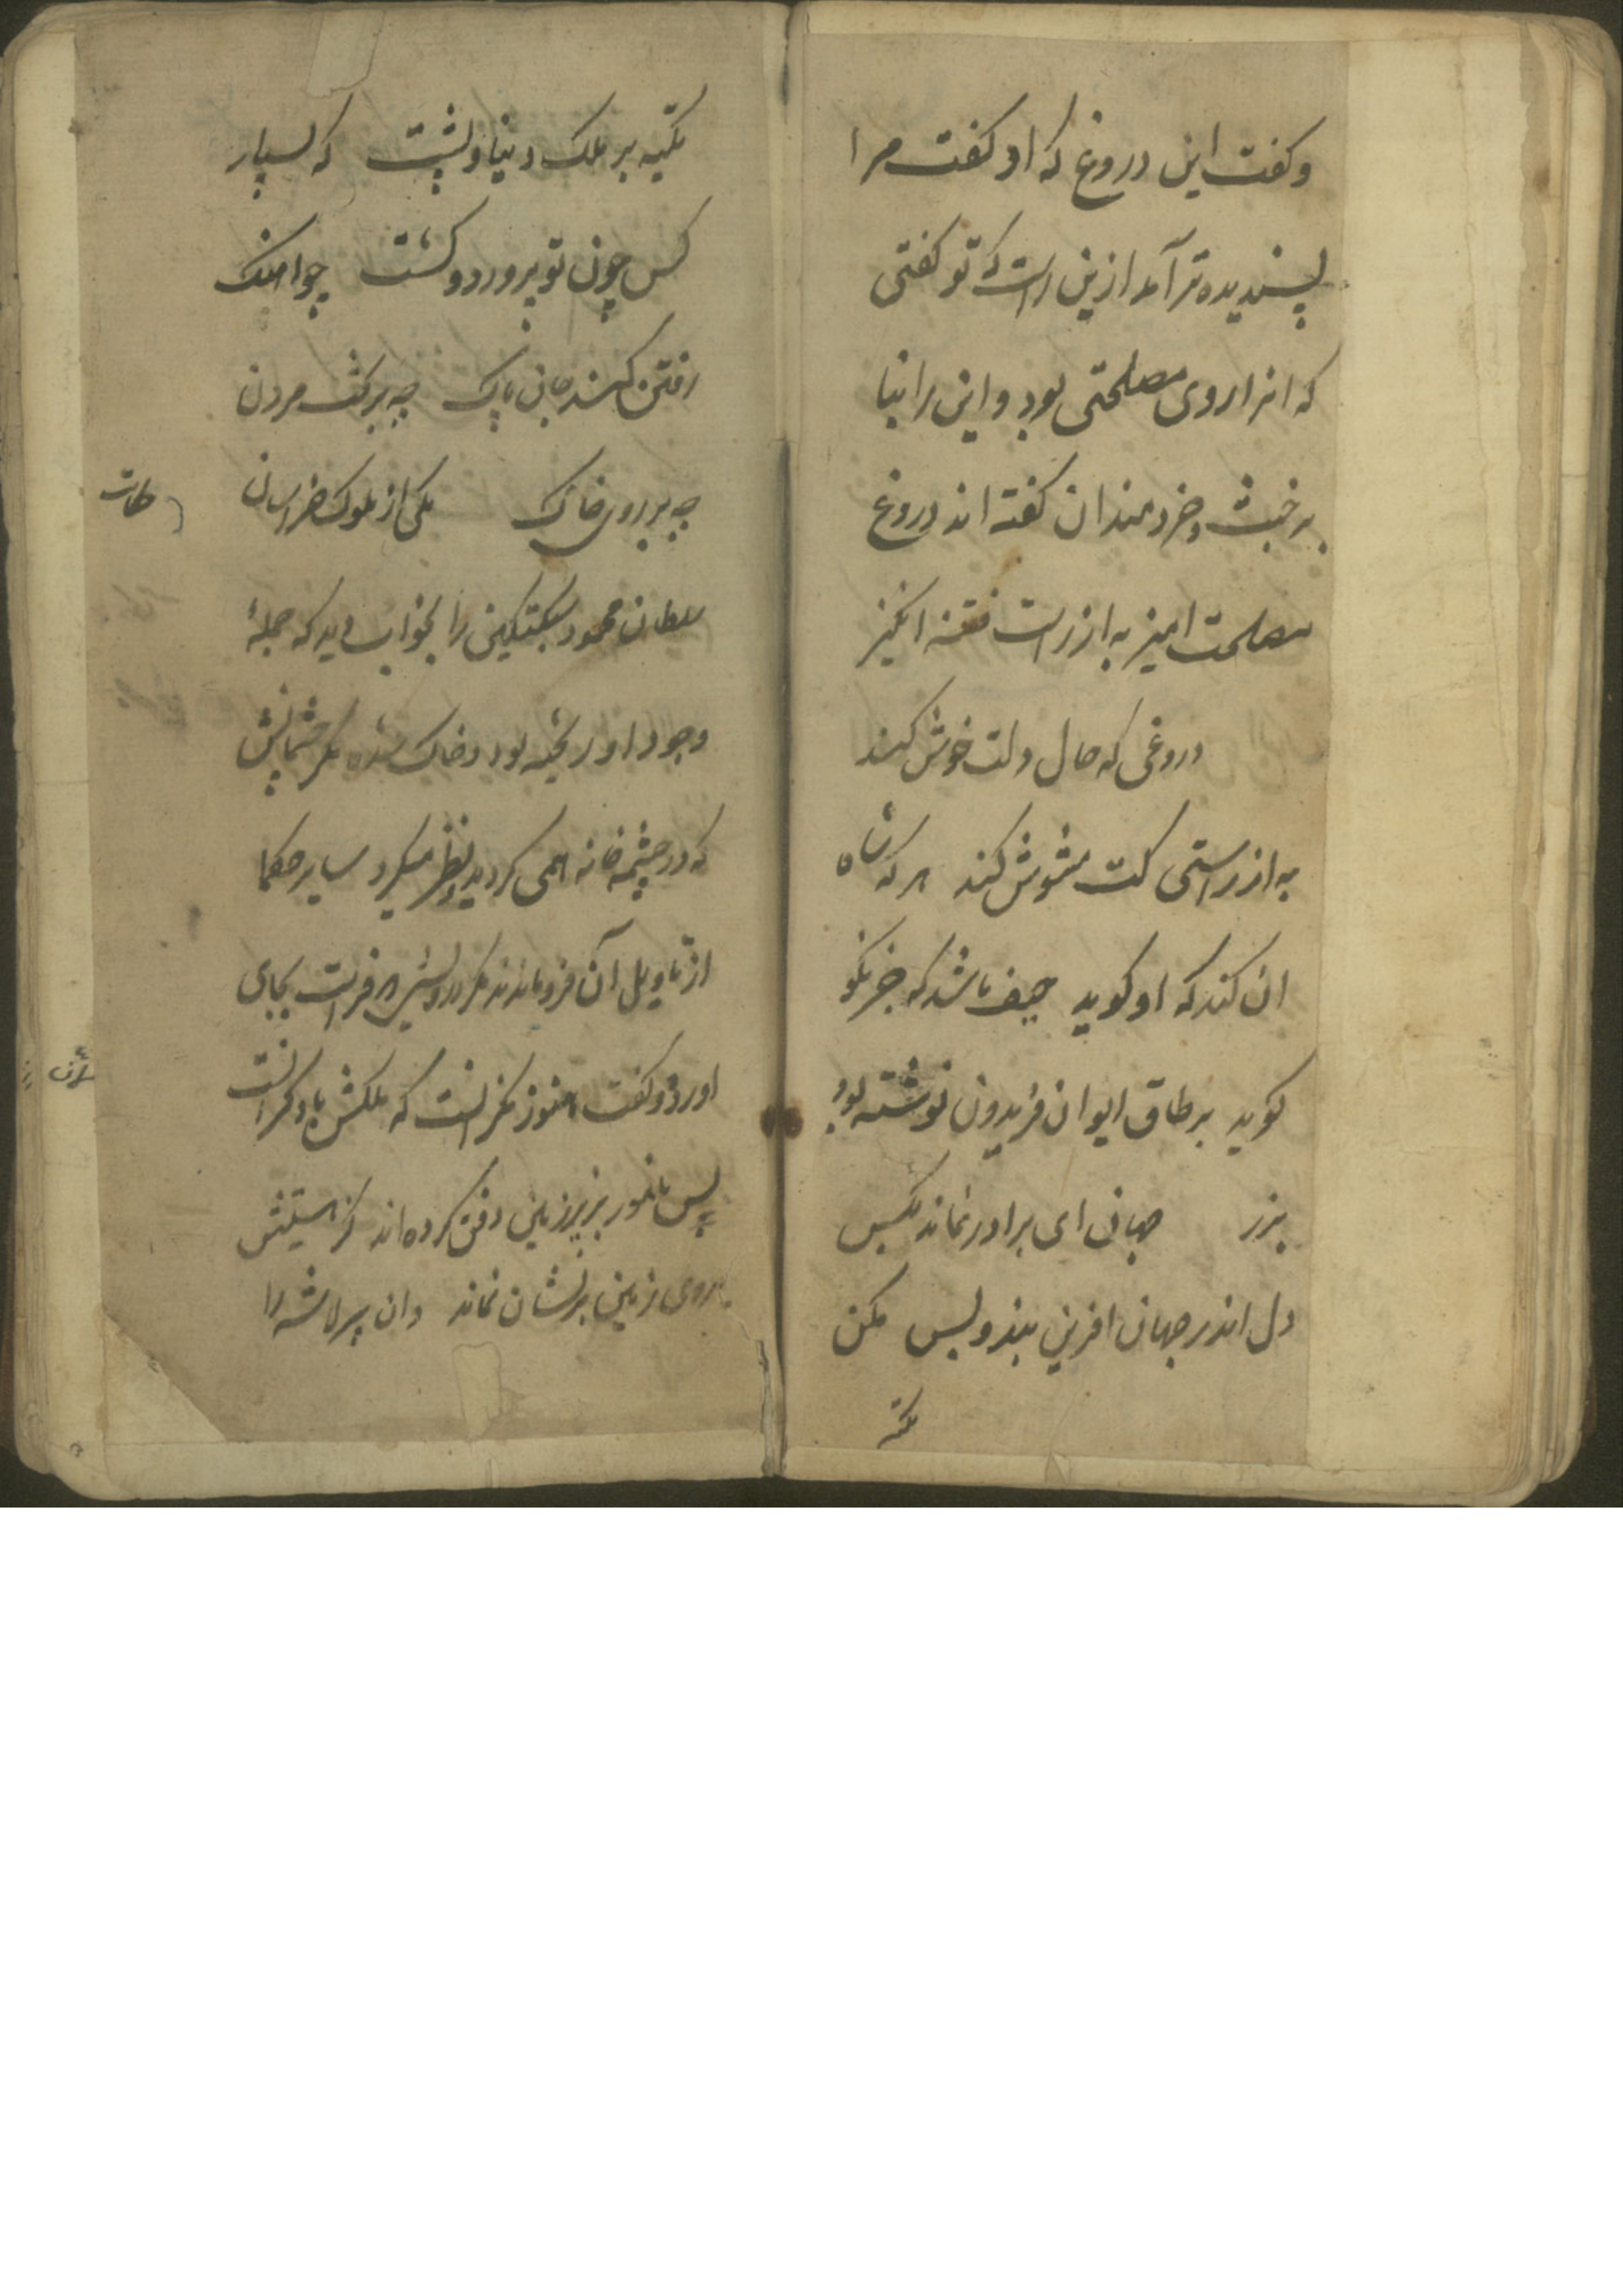 و کفت این دروغ که او کفت مرا
پسندیده تر آمد ازین راست که تو کفتی
که انرا روی مصلحتی بود و این را بنا
بر خبث و خردمندان کفته اند دروغ
مصلحت امیز به از راست فتنه انکیز
دروغی که حال دلت خوش کند
به از راستی کت مشوش کند هر که شاه
ان کند که او کوید حیف باشد که جز نکو
کوید بر طاق ایوان فریدون نوشته بود
بزر جهان ای برادر نماند بکس
دل اندر جهان افرین بند و بس مکن
تکیه
تکیه بر ملک دنیا و پشت که بسیار
کس چون تو پرورد و کشت چو اهنک
رفتن کند جان پاک چه بر تخت مردن
چه بر روی خاک یکی از ملوک خراسان
حکایت
سلطان محمود سبکتکین را بخواب دید که جملهٔ
وجود او ریخته بود و خاک شده مکر چشمانش
که در چشم خانه همی کردید و نظر میکرد سایر حکما
از تاویل آن فرو ماندند مکر درویشی که فراست بجای
اورد و کفت هنوز نکرانست که ملکش با دکرانست
بس نامور بزیر زمین دفن کرده اند کز هستیش
بروی زمین بر نشان نماند وان پیر لاشه را